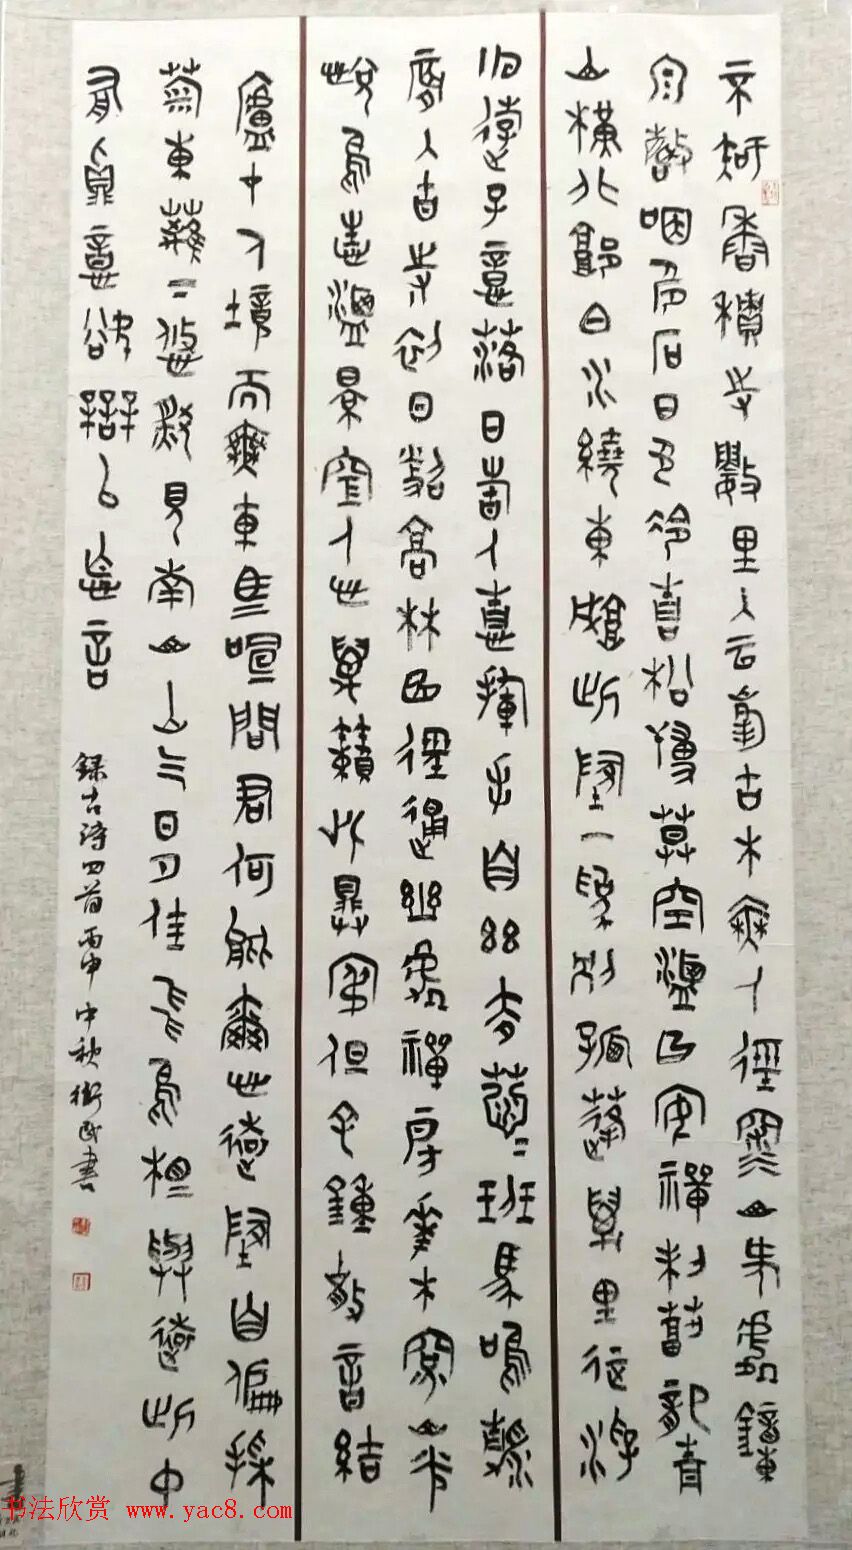 不知香積寺數里入云峯古木無人徑深山何處鐘
泉聲咽危石日色冷青松薄暮空潭曲安禪制毒龍青
山橫北郭白水繞東城此地一為別孤蓬萬里征浮
雲遊子意落日故人情揮手自茲去蕭〻班馬鳴清
晨入古寺初日照高林曲徑通幽處禪房花木深山光
悅鳥性潭影空人心萬籟此俱寂但余鐘磬音結
廬在人境而無車馬喧問君何能爾心遠地自偏採
菊東籬下悠然見南山山氣日夕佳飛鳥相與還此中
有真意欲辨已忘言 錄古詩四首丙申中秋衛民書
书法欣赏 www.yac8.com